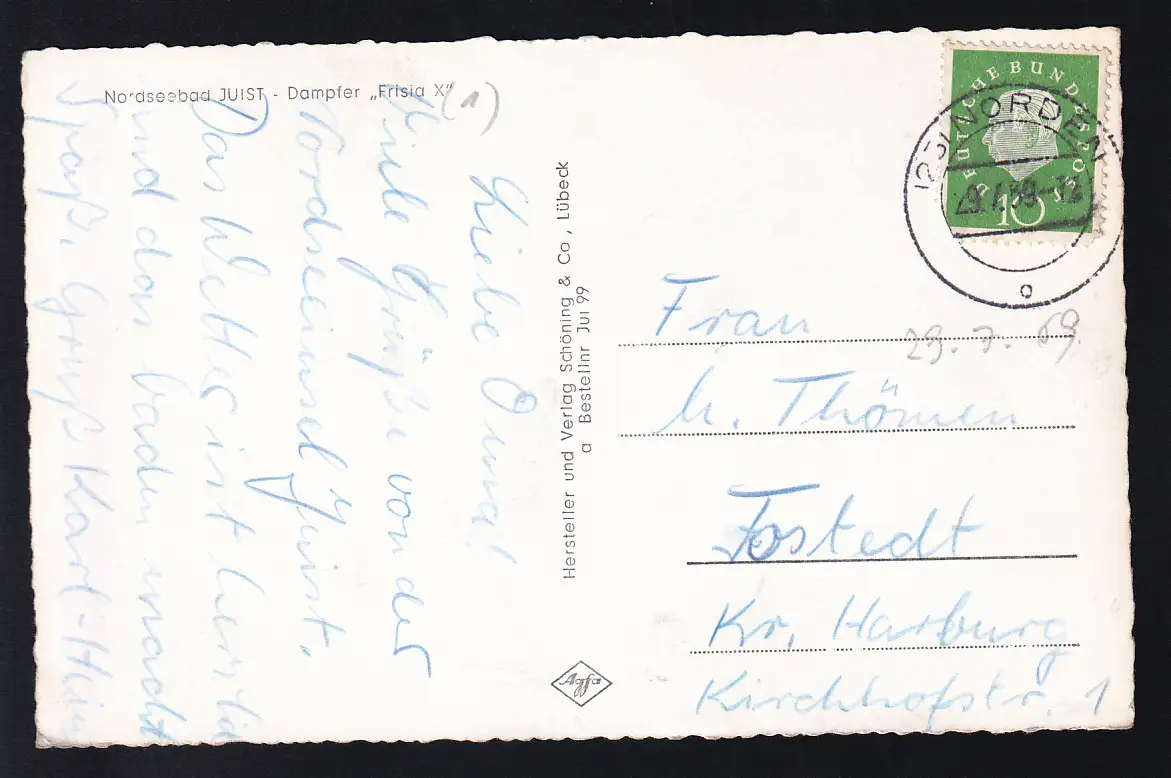 Nordseebad JUIST - Dampfer „Frisia X"
(1)
Liebe Oma!
Viele Grüße von der
Nordseeinsel Juist.
Das Wetter ist
und das baden macht
Spaß. Gruß Karl-Heinz
Hersteller und Verlag Schöning & Co, Lübeck
a Bestellnr Jui 99
Agfa
DEUTSCHE BUNDESPOST
10
NORDEN
9.7.59-12
o
Frau
Thömen
Tostedt
Kr. Harburg
Kirchhofstr. 1
29.7.59